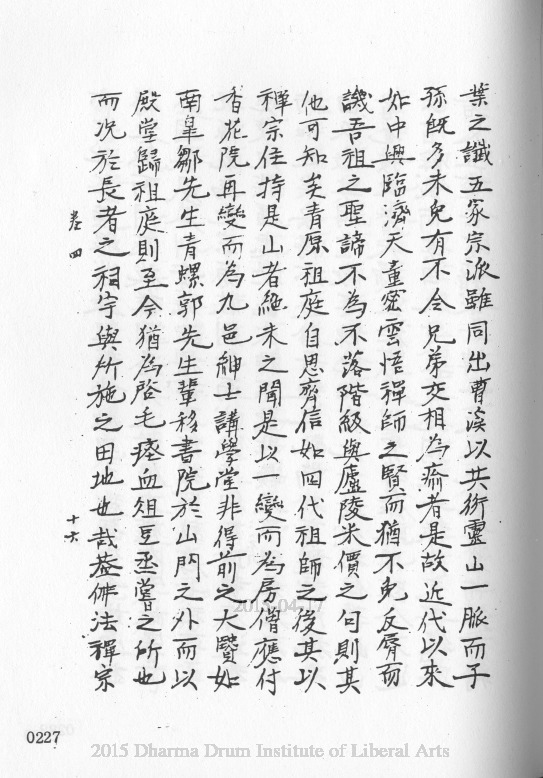 業之讖五家宗派雖同出曹溪以共衍靈山一脈而子
孫既多未免有不令兄弟交相為瘉者是故近代以來
如中興臨濟天童密雲悟禪師之賢而猶不免反脣而
譏吾祖之聖諦不為不落階級與廬陵米價之句則其
他可知矣青原祖庭自思齊信如四代祖師之後其以
禪宗住持是山者絕未之聞是以一變而為房僧應付
香花院再變而為九邑紳士講學堂非得前之大賢如
南皐鄒先生青螺郭先生輩移書院於山門之外而以
殿堂歸祖庭則至今猶為啓毛瘞血俎豆烝嘗之所也
而況於長者之祠宇與所施之田地也哉葢佛法禪宗
卷四
十六
0227
2015-04-17
2015 Dharma Drum Institute of Liberal Arts